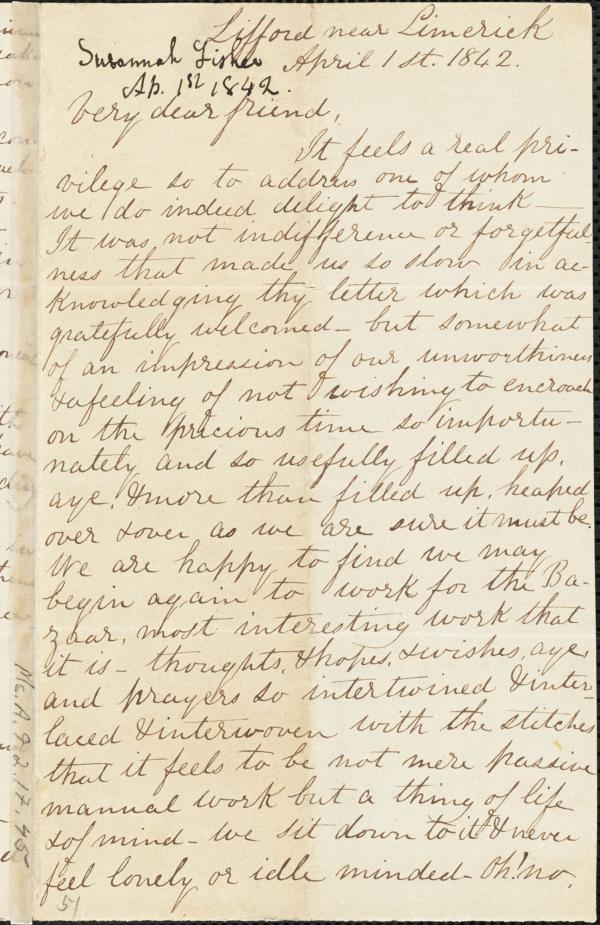 Lifford near Limerick
Susannah Fisher
April 1 st. 1842.
Ap. 1st 1842.
Very dear friend,
It feels a real pri-
vilege so to address one of whom
we do indeed delight to think —
It was, not indifference or forgetful-
ness that made us so slow in ac-
knowledging thy letter which was
gratefully welcomed - but somewhat
of an impression of our unworthiness
& a feeling of not wishing to encroach
on the precious time so importu-
nately and so usefully filled up,
aye, & more than filled up, heaped
over & over as we are sure it must be.
We are happy to find we may
begin again to work for the Ba-
zaar, most interesting work that
it is - thoughts, & hopes, & wishes, aye,
and prayers so intertwined & inter-
laced & interwoven with the stitches
that it feels to be not mere passive
manual work but a thing of life
& of mind - we sit down to it & never
feel lonely or idle minded - Oh! no,
51
Ms. A. 9. 2. 17. 45